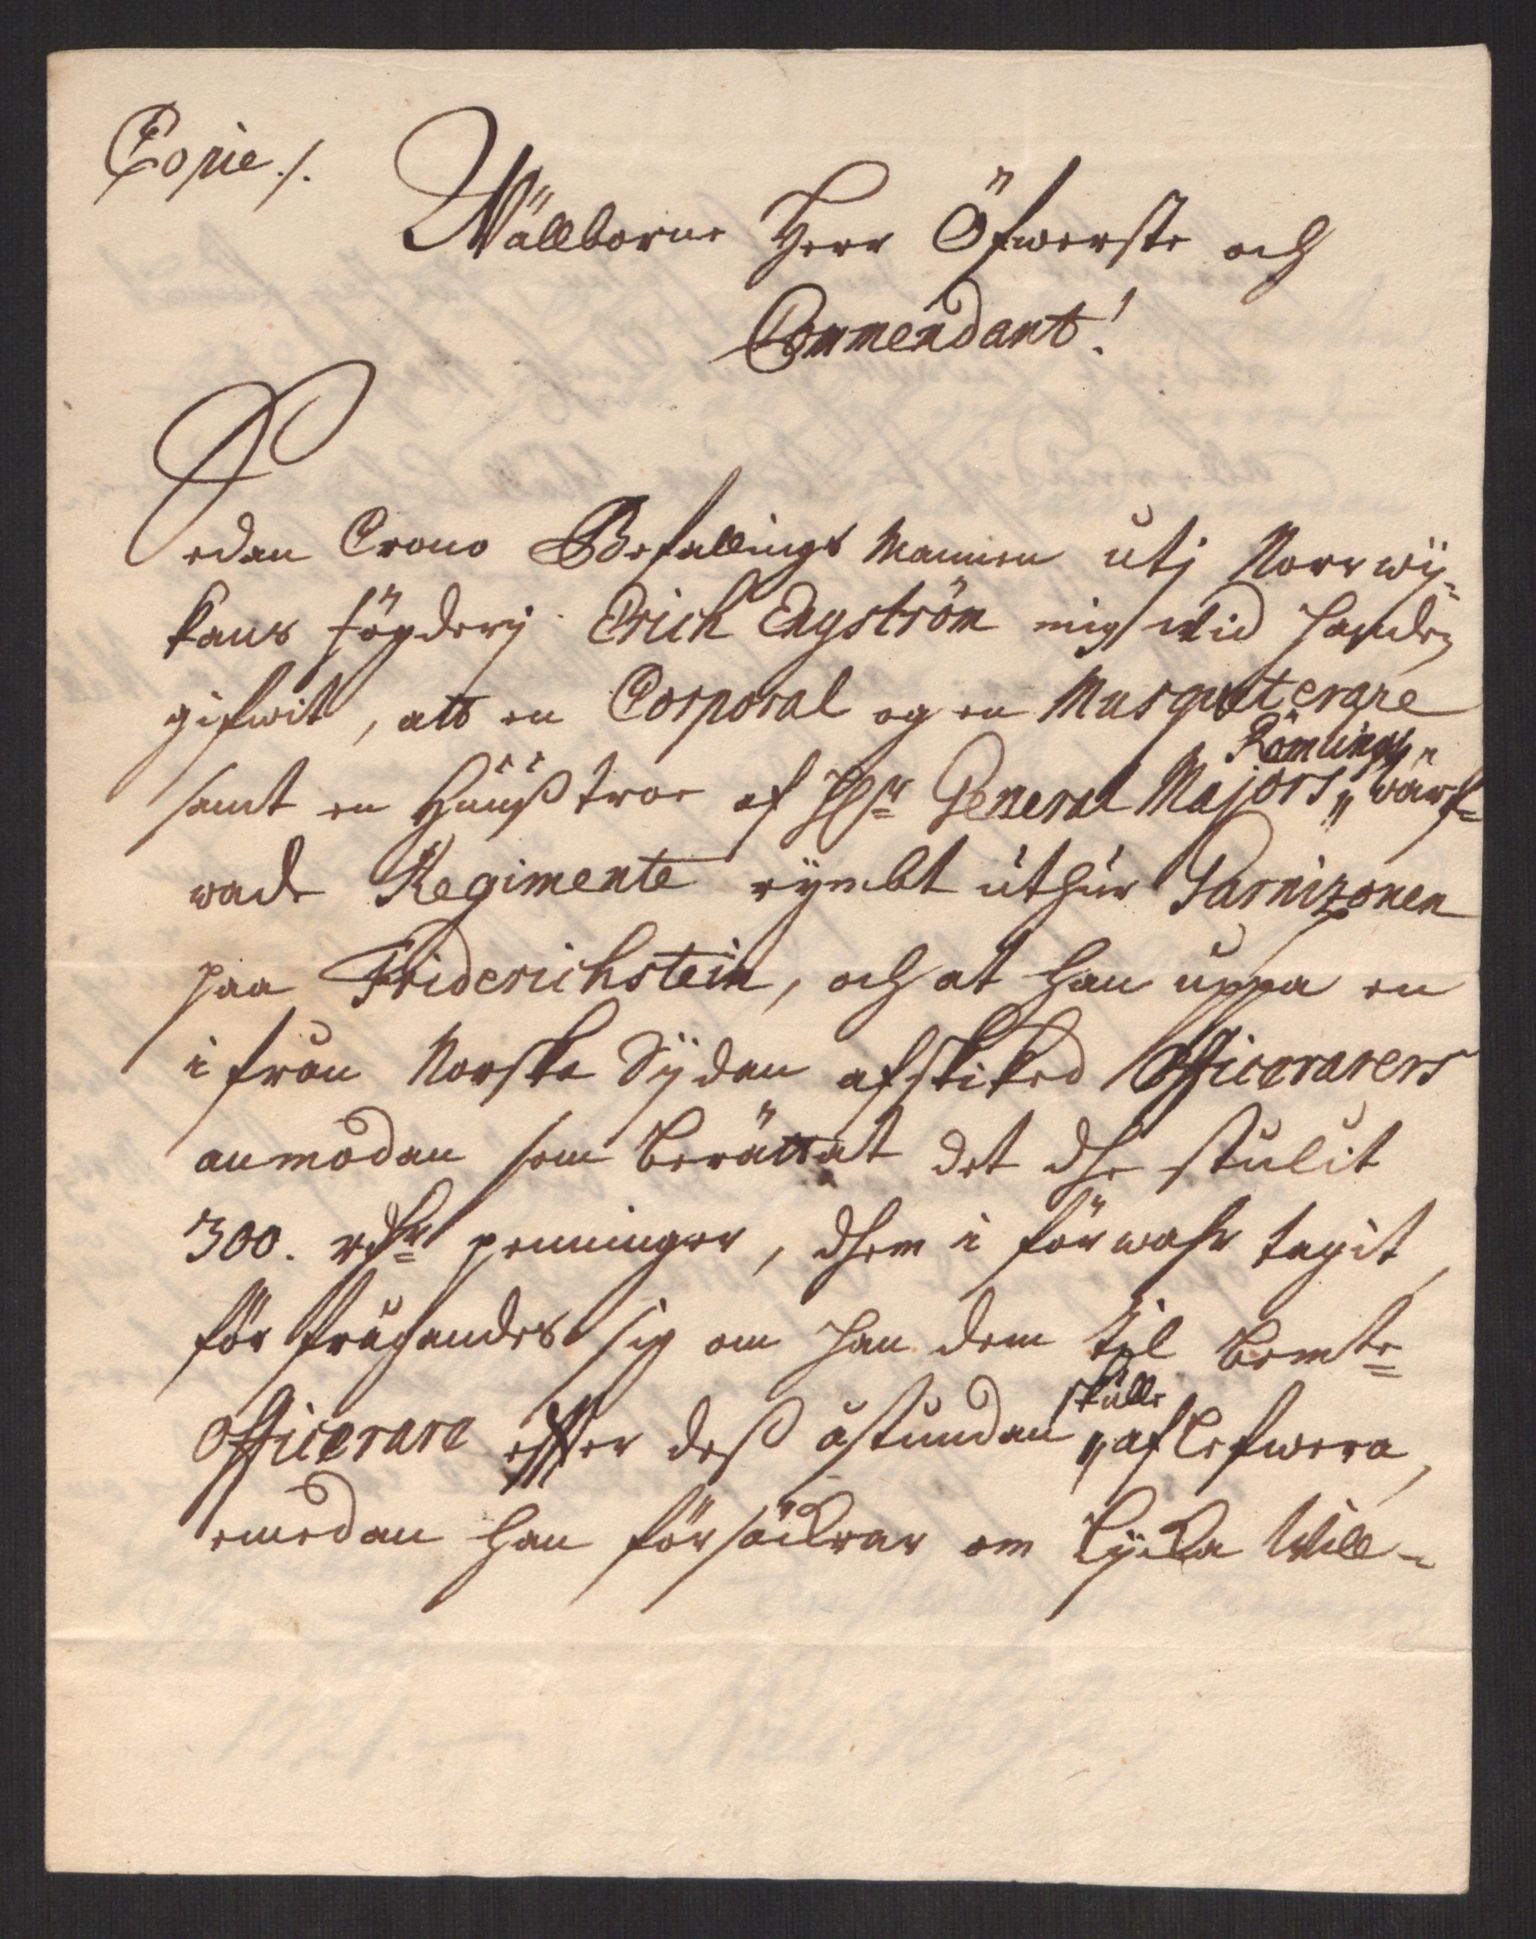 Copie ./.
Wällborne Herr Öfwerste och
Commendant!
Sedan Crono Befallings Mannen utj Norrwij-
kens fögderj Erich Engström mig wid handen
gifwit, att en Corporal og en Musqueterare
samt en Huüstroe af Hr General Majors „ Römlings „ wärf-
wade Regimente rymbt uthur Garnizonen
paa Friderichstein, och at han uppa en
ifrån Norske Sÿdan afskiked Officerarers
anmodan som berättat det dhe stulit
300. rdhr penningar, dhem i förwahr tagit,
förfrågandes sig om han dem til bemte
Officerare effter dess åstundan „ skulle aflefwera,
emedan han försäckrar om lÿcka Will-